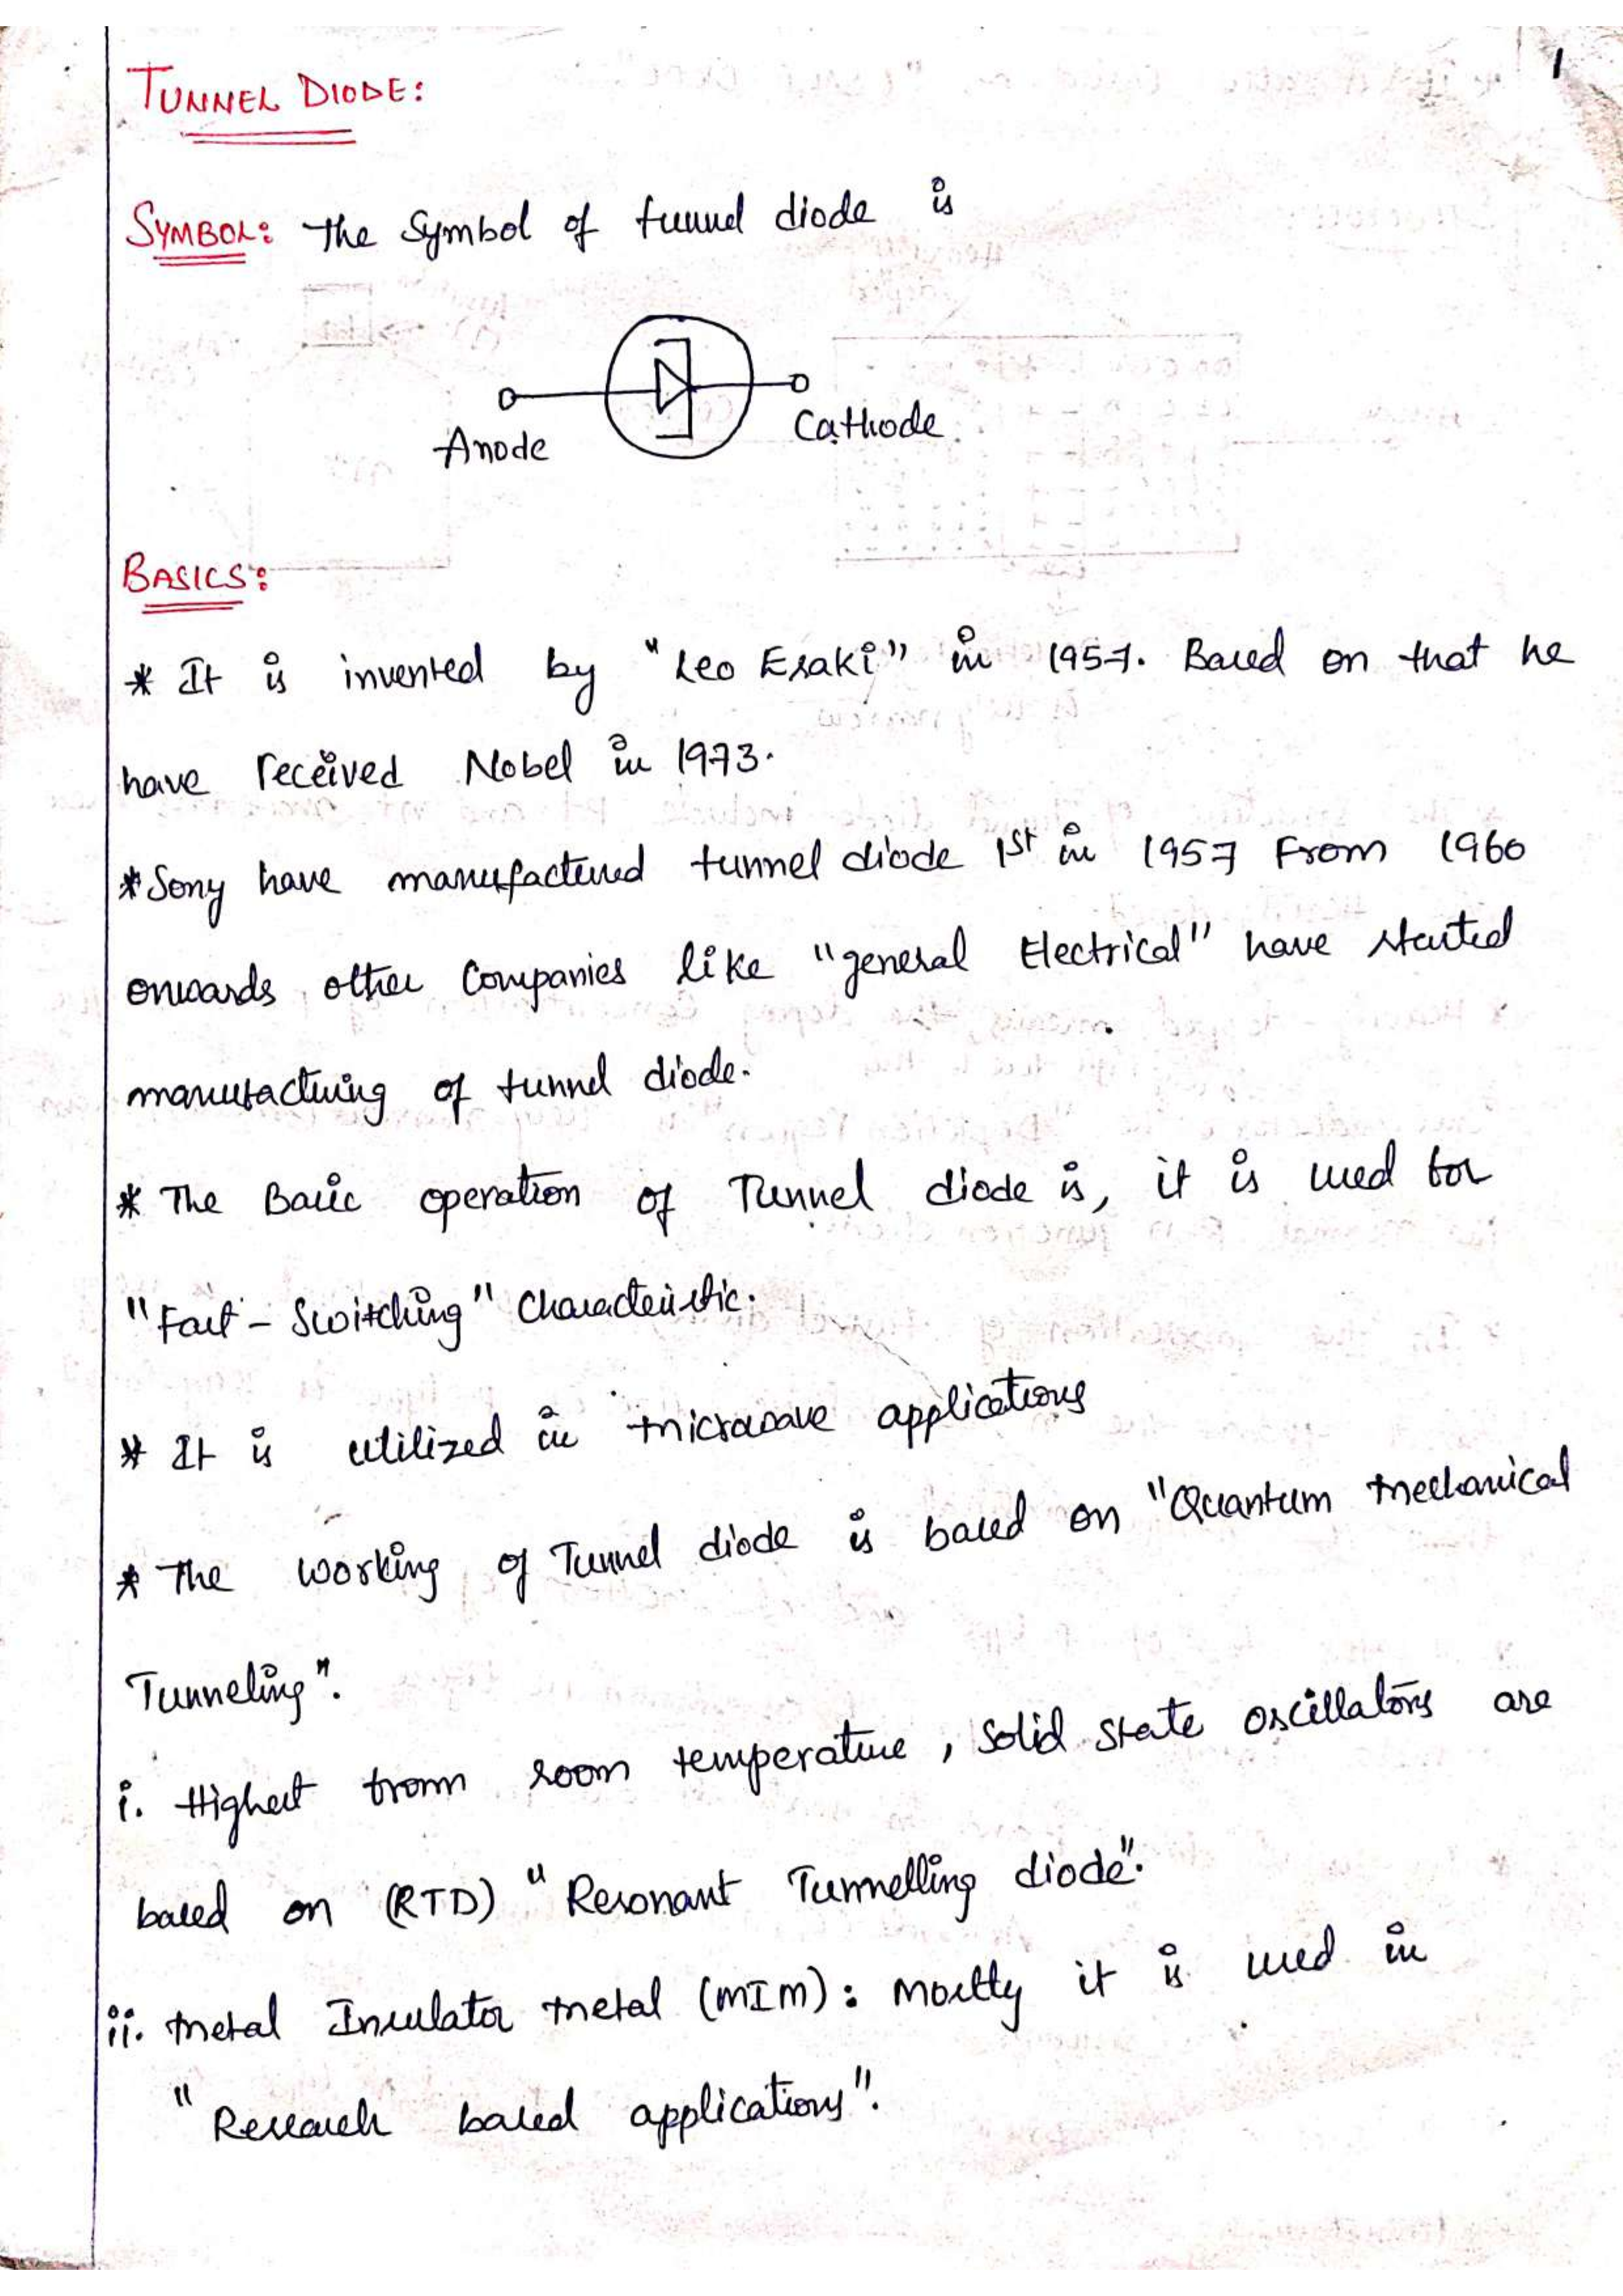 1
TUNNEL DIODE:
SYMBOL: the Symbol of tunnel diode is
Anode
Cathode
BASICS:
* It is invented by "Leo Esaki" in 1957. Based on that he
have received Nobel in 1973.
* Sony have manufactured tunnel diode 1st in 1957 From 1960
onwards other Companies like "general Electrical" have started
manufacturing of tunnel diode.
* The Basic operation of Tunnel diode is, it is used for
"Fast - Switching" Characteristic.
* It is utilized in microwave applications
* The working of Tunnel diode is based on "Quantum Mechanical
Tunneling".
i. Highest from room temperature, Solid state oscillators are
based on (RTD) "Resonant Tunnelling diode".
ii. Metal Insulator Metal (MIM): Mostly it is used in
"Research based applications".